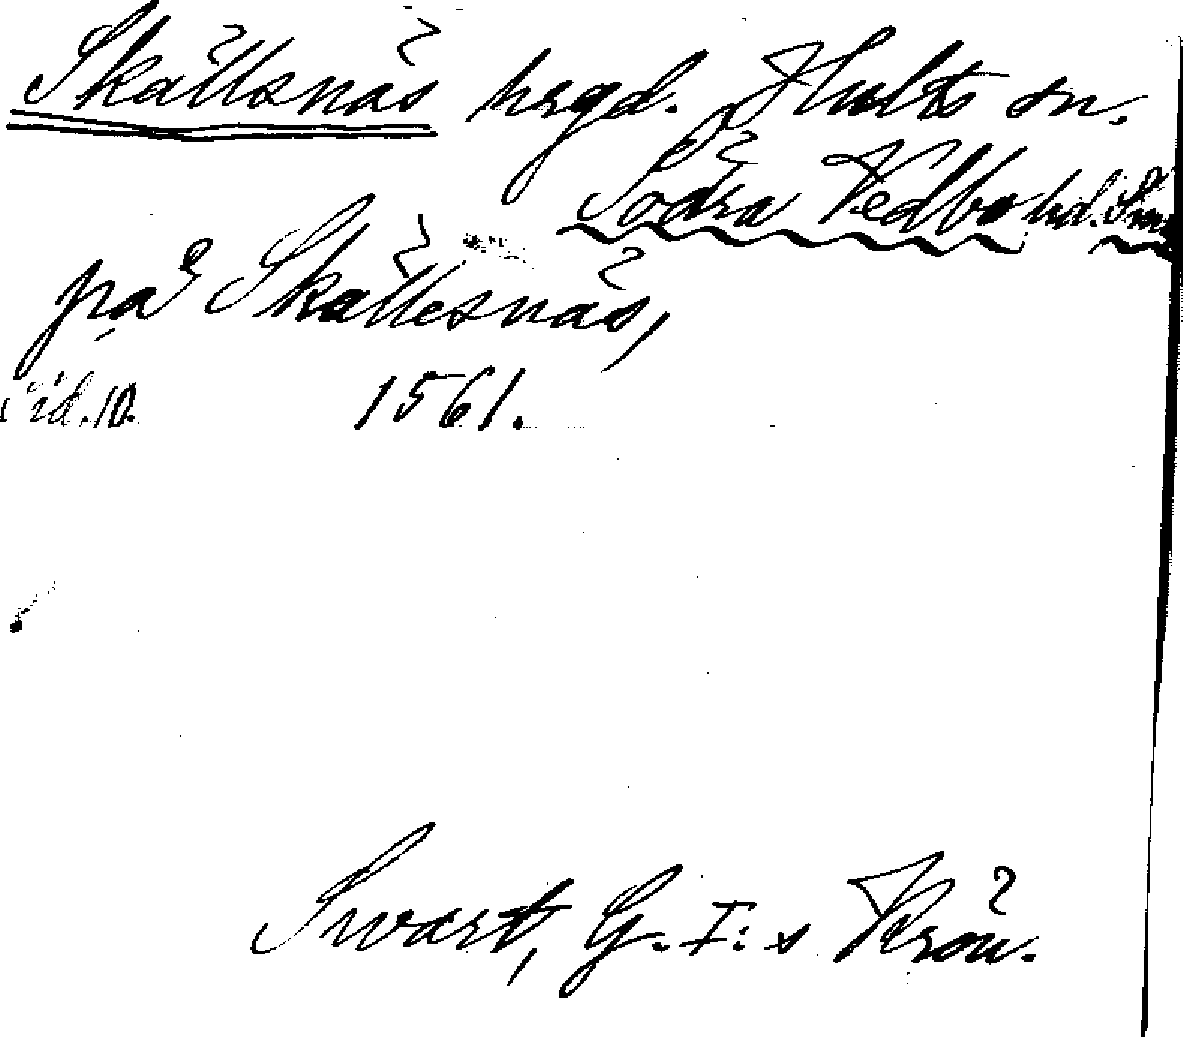 Skällsnäs hrgd. Hults sn.
Södra Vedbo hd. Sm
på Skällesnäs,
Sid. 10. 1561.
Swart, G. I:s Krön.